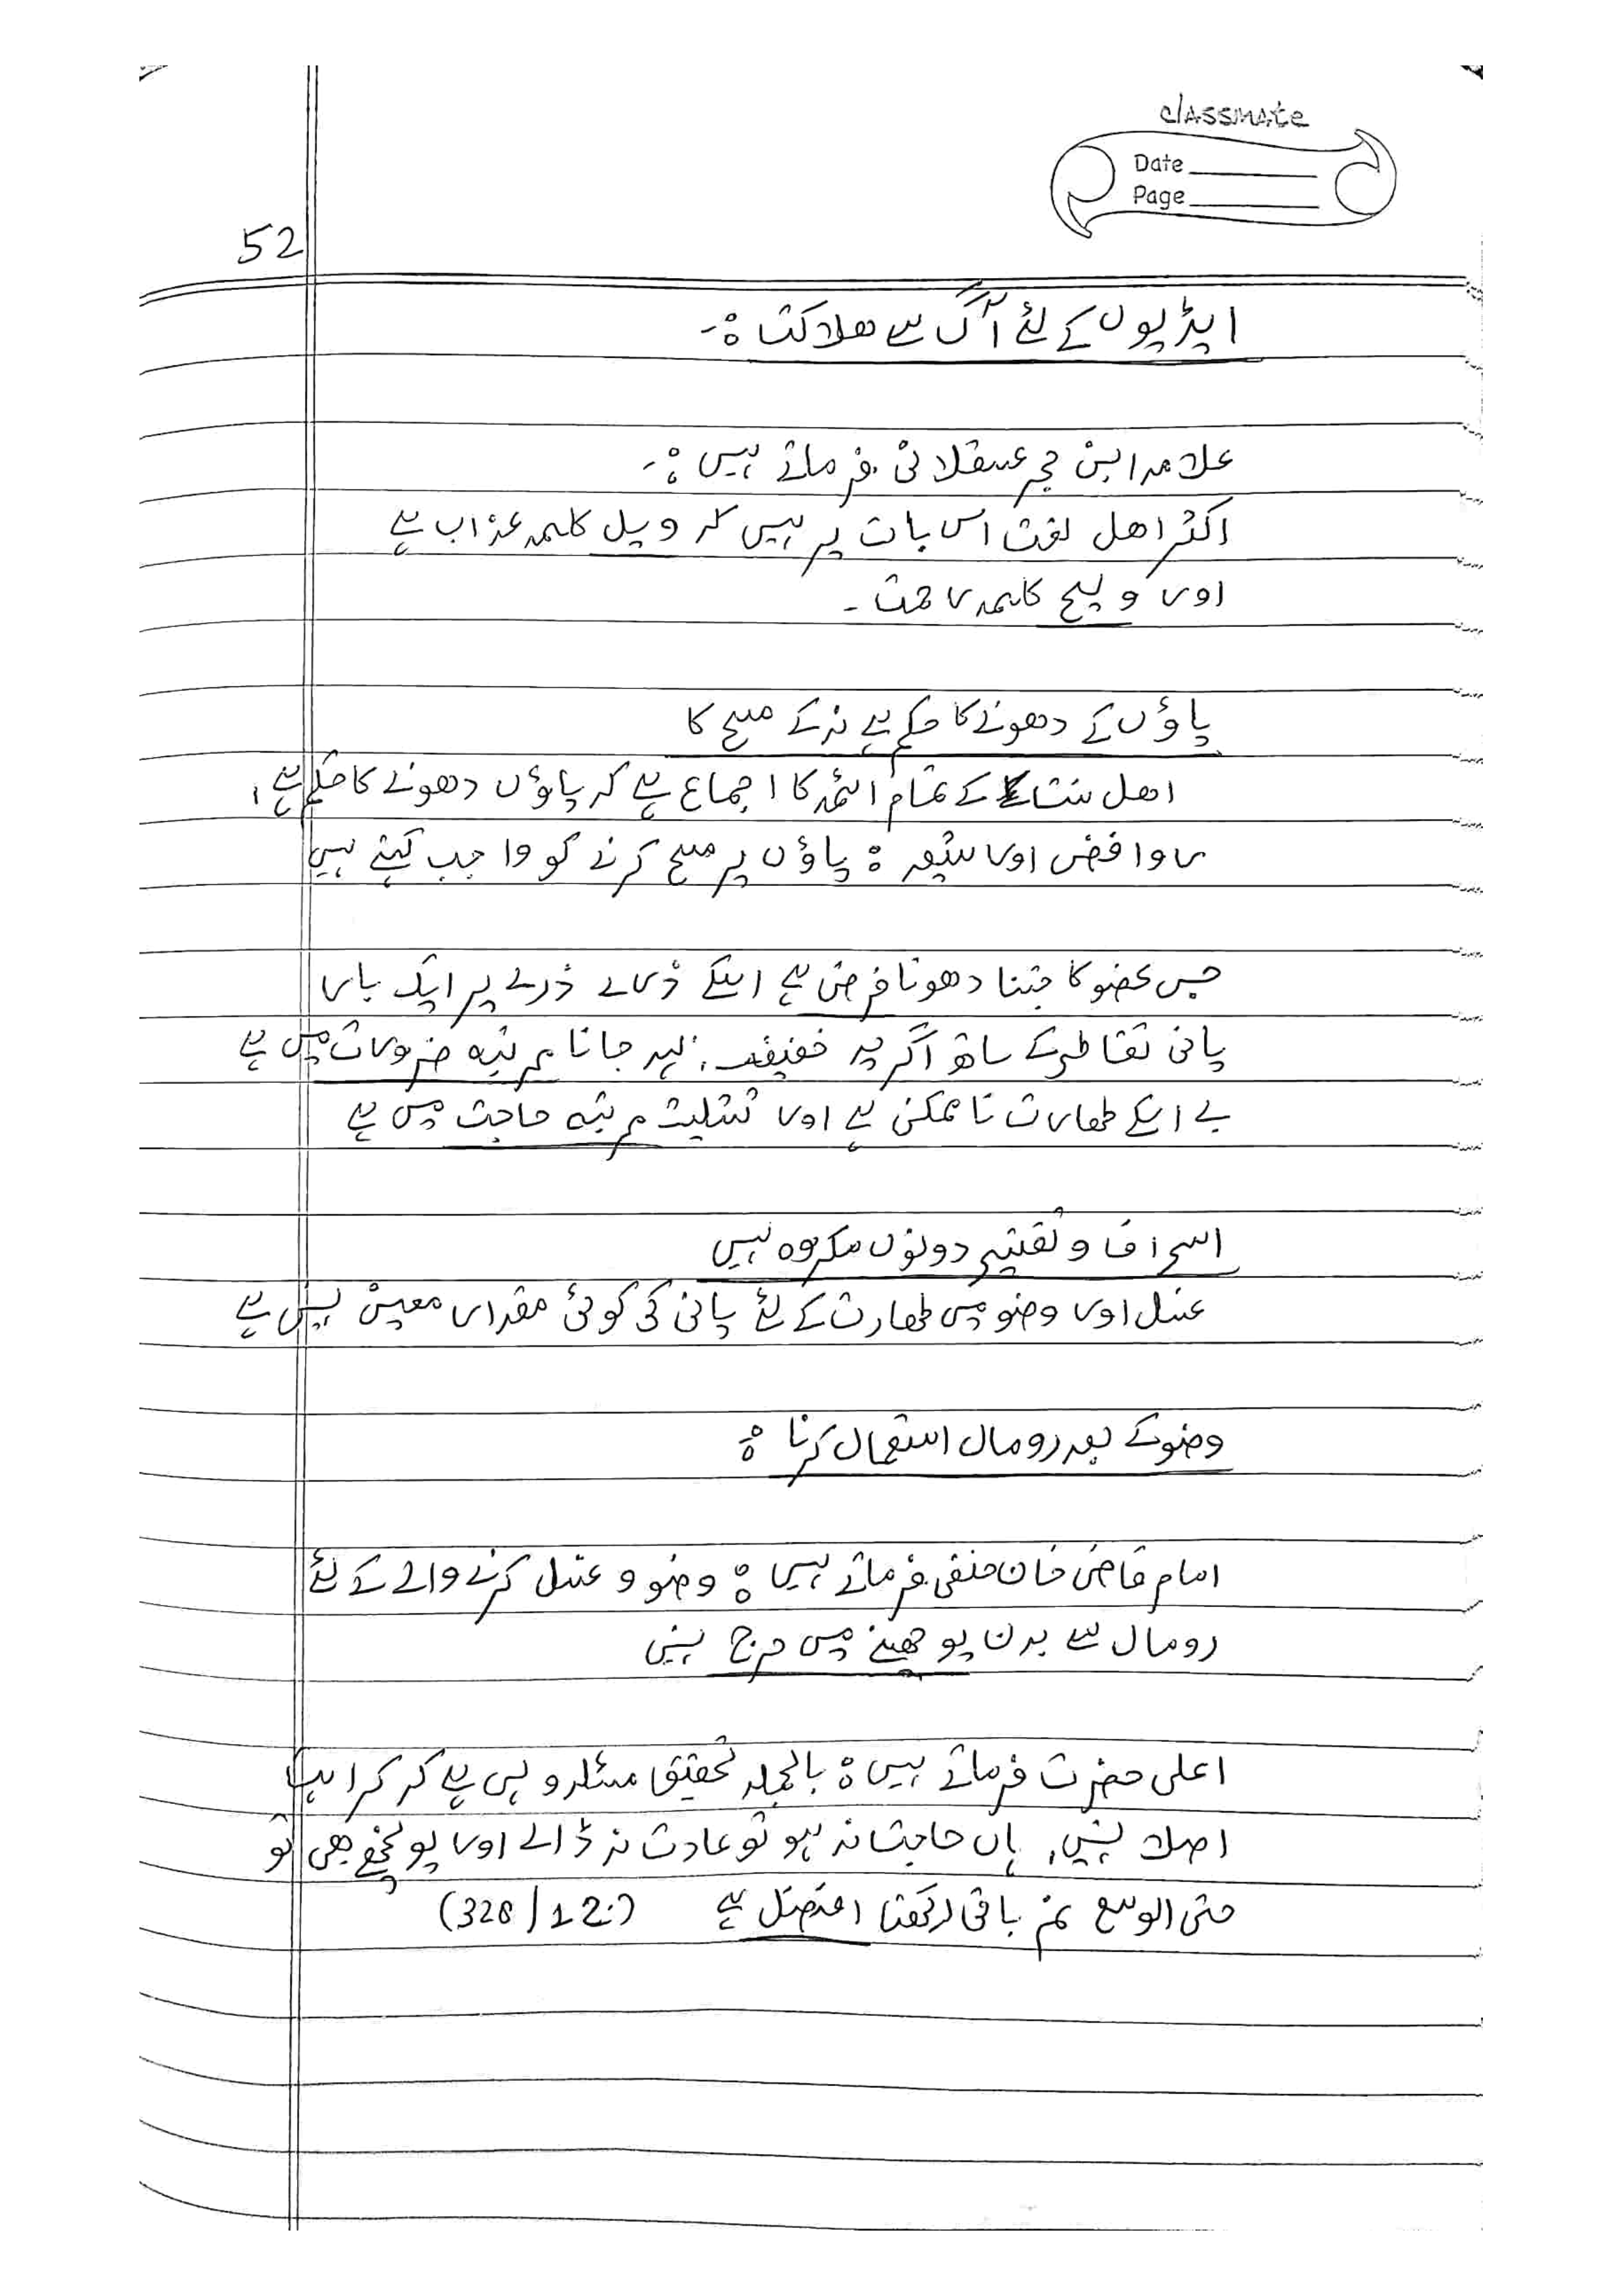 classmate
Date
Page
52
ایڑیوں کے لئے آگ سے ھلاکت ہ:-
علامہ ابن حجر عسقلانی فرماتے ہیں ہ:-
اکثر اھل لغت اس بات پر ہیں کہ ویل کلمہ عذاب ہے
اور ویح کلمہ رحمت -
پاؤں کے دھونے کا حکم ہے نہ کے مسح کا
اھل سنت کے تمام ائمہ کا اجماع ہے کہ پاؤں دھونے کا حکم ہے،
روافض اور شیعہ : پاؤں پر مسح کرنے کو واجب کہتے ہیں
جس عضو کا جتنا دھونا فرض ہے اسکے ذرے ذرے پر ایک بار
پانی تقاطر کے ساتھ اگرچہ خفیف، بہہ جانا مرتبہ ضرورت میں ہے
بے اسکے طھارت ناممکن ہے اور تثلیث مرتبہ حاجت میں ہے
اسراف و تقتیر دونوں مکروہ ہیں
غسل اور وضو میں طھارت کے لئے پانی کی کوئی مقدار معین نہیں ہے
وضو کے بعد رومال استعمال کرنا :
امام قاضی خان حنفی فرماتے ہیں : وضو و غسل کرنے والے کے لئے
رومال سے بدن پوچھنے میں حرج نہیں
اعلی حضرت فرماتے ہیں : بالجملہ تحقیق مسئلہ وہی ہے کہ کراہت
اصلا نہیں، ہاں حاجت نہ ہو تو عادت نہ ڈالے اور پونچھے بھی تو
حتی الوسع نم باقی رکھنا افضل ہے (ج:1/328)